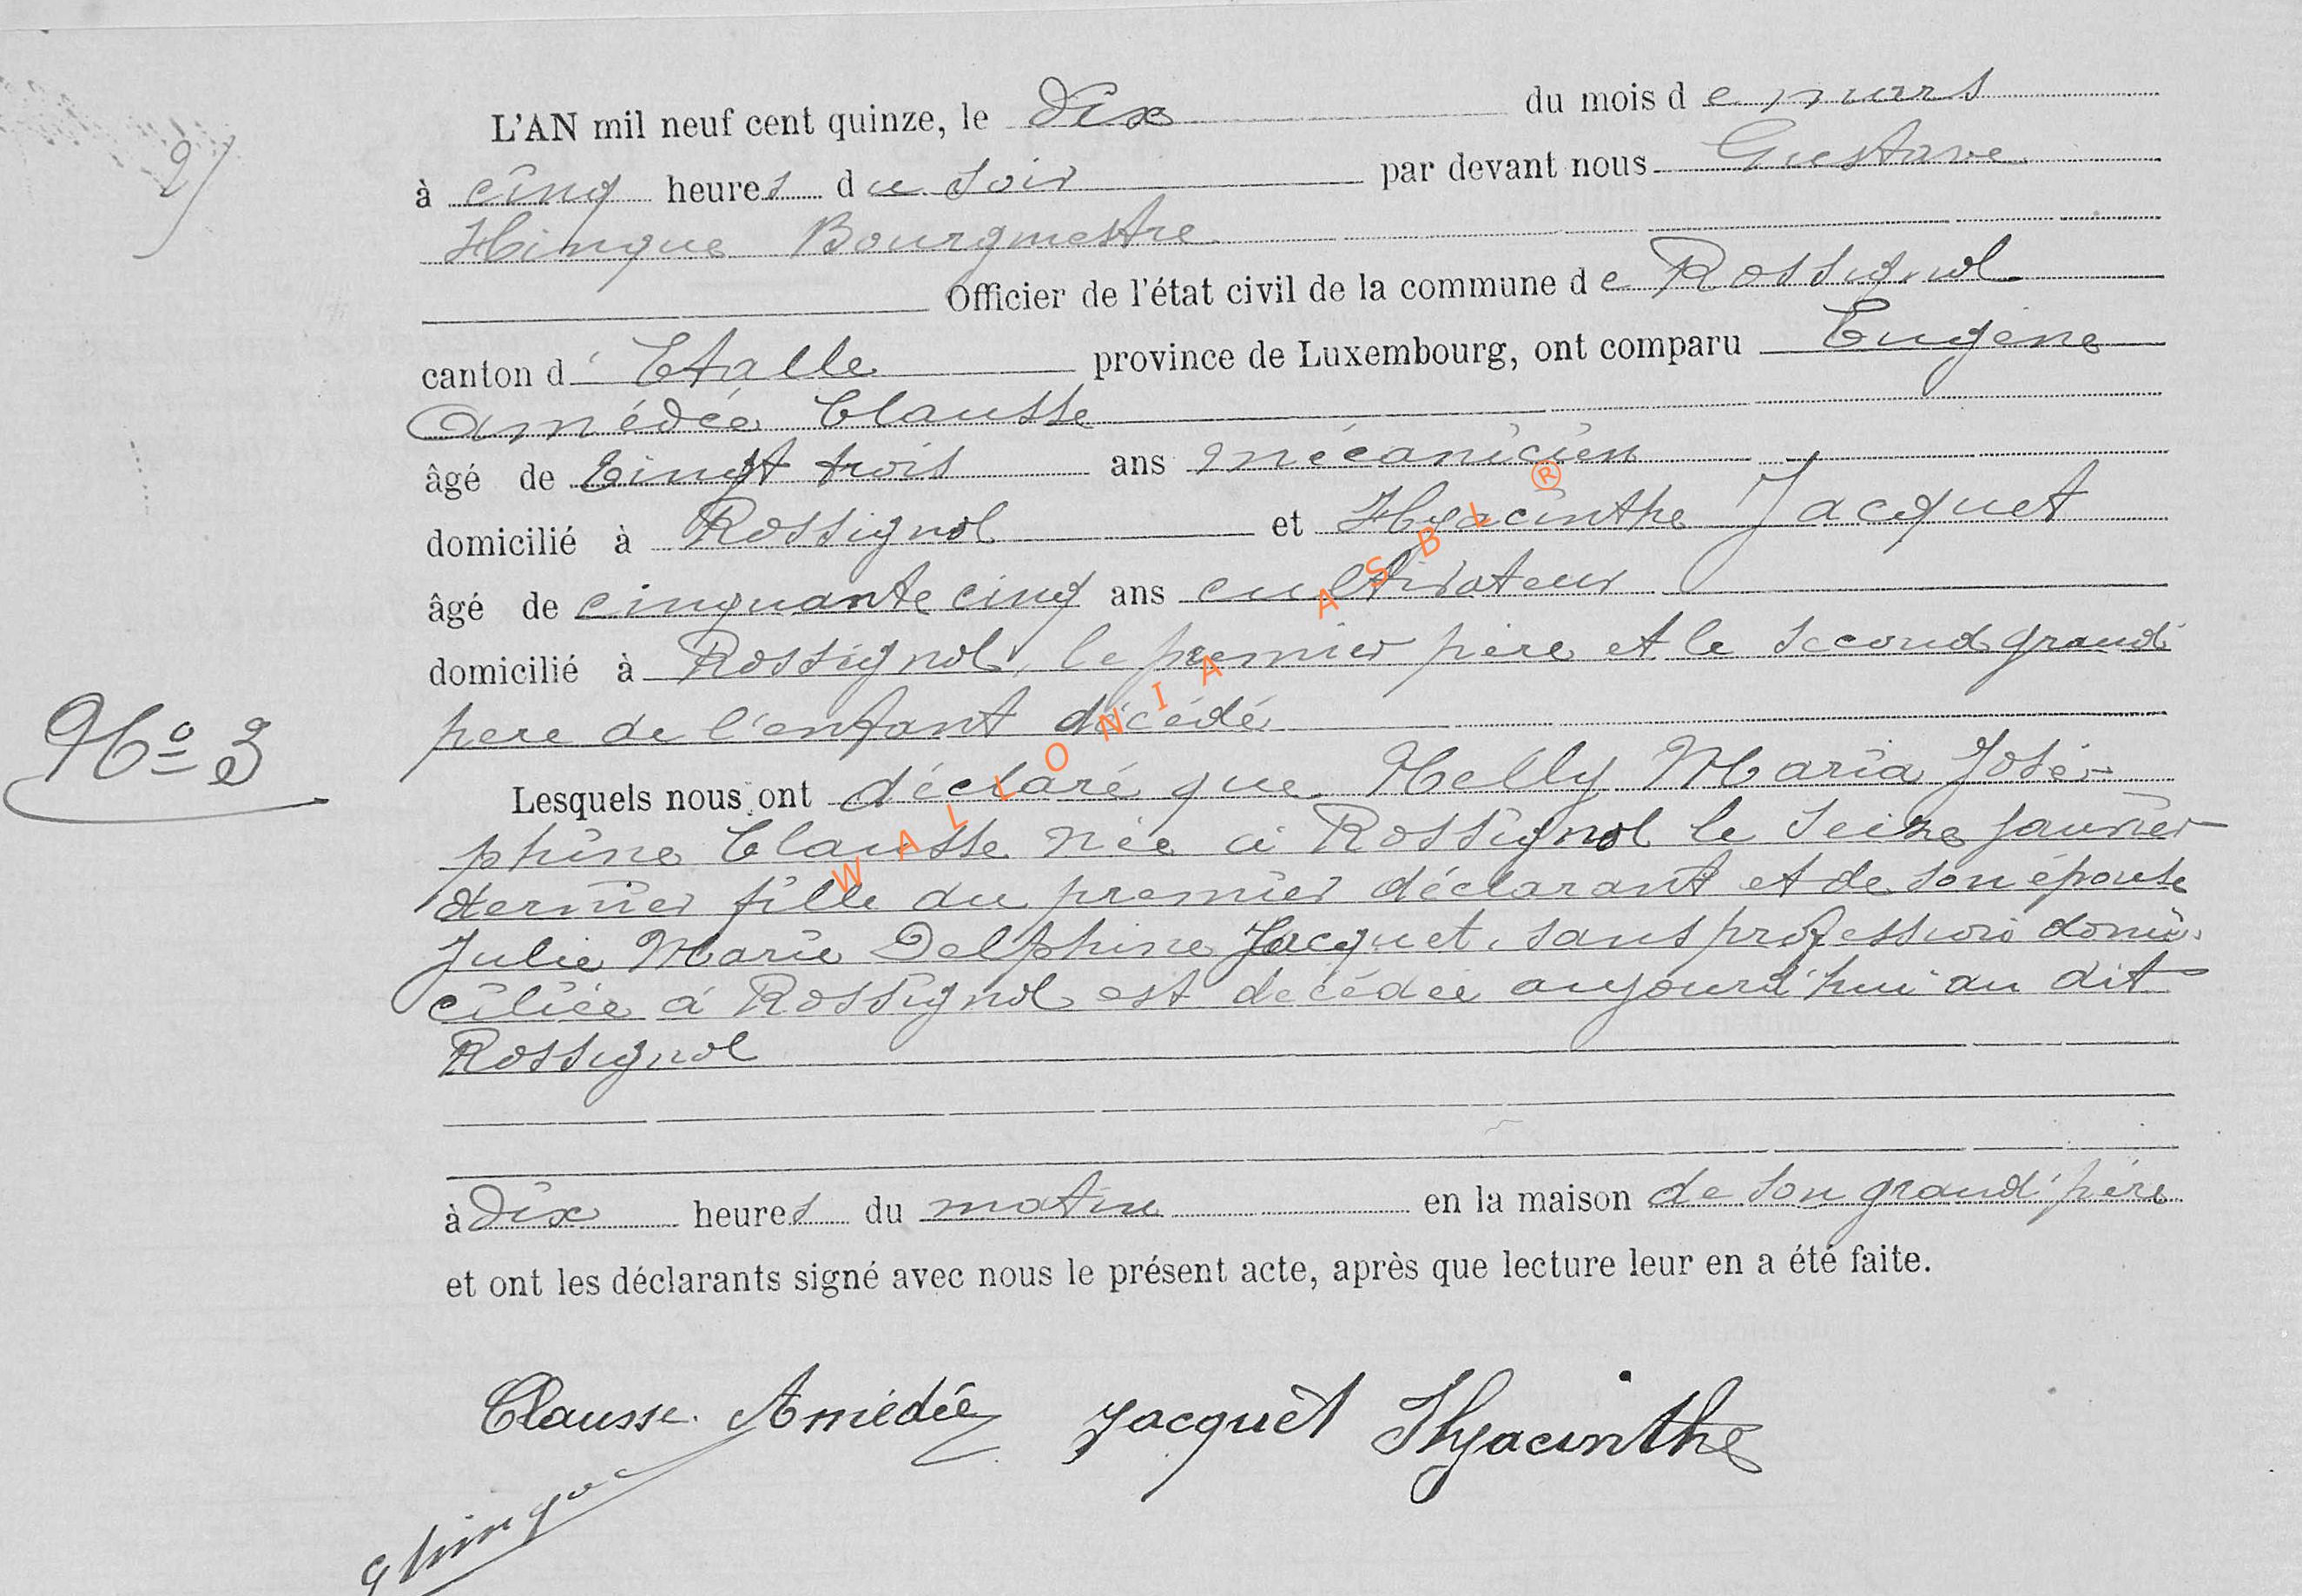 2)
L'AN mil neuf cent quinze, le Dix du mois de mars
à cinq heures du soir par devant nous Gustave
Hinque Bourgmestre
Officier de l'état civil de la commune de Rossignol
canton d'Etalle province de Luxembourg, ont comparu Eugène
Amédée Clausse
âgé de Vingt trois ans mécanicien
domicilié à Rossignol et Hyacinthe Jacquet
âgé de cinquante cinq ans cultivateur
domicilié à Rossignol, le premier père et le second grand'
père de l'enfant décédé
No 3
Lesquels nous ont déclaré que Nelly Maria José-
phine Clausse née à Rossignol le seize janvier
dernier fille du premier déclarant et de son épouse
Julie Marie Delphine Jacquet, sans profession domi-
ciliée à Rossignol est décédée aujourd'hui au dit
Rossignol
à Dix heures du matin en la maison de son grand'père
et ont les déclarants signé avec nous le présent acte, après que lecture leur en a été faite.
Clausse Amédée Jacquet Hyacinthe
GHinque
WALLONIA ASBL ®